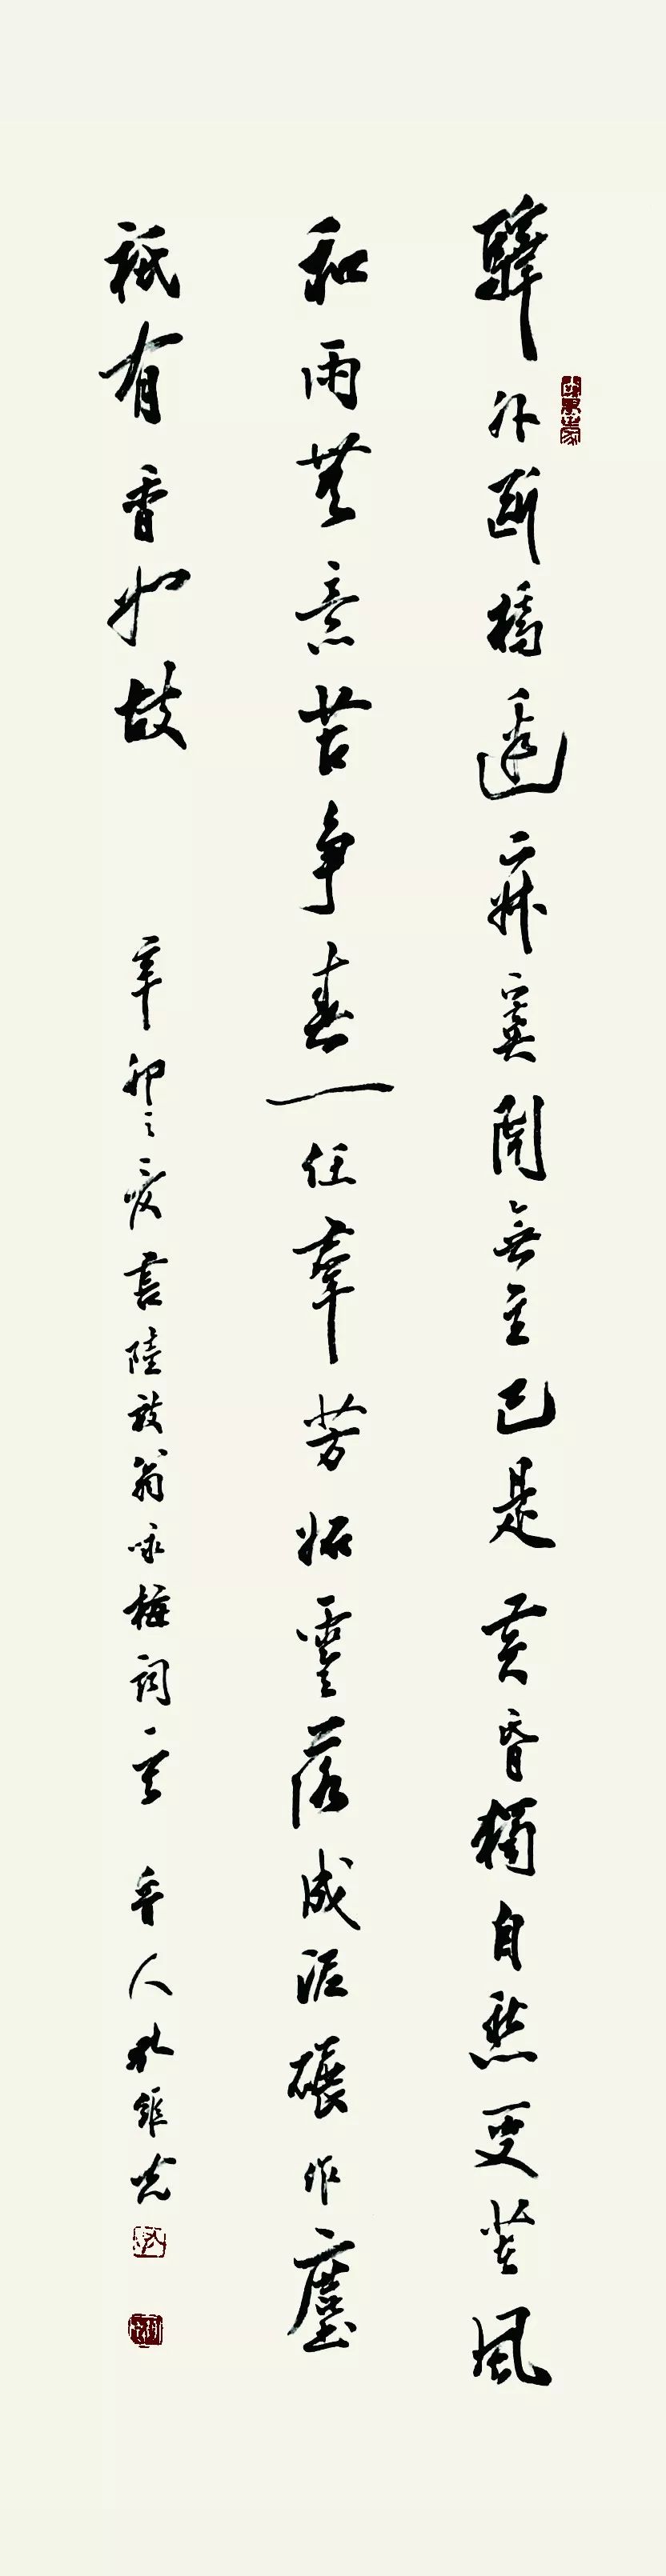 驛外斷橋邊寂寞開無主已是黃昏獨自愁更著風
和雨無意苦爭春一任羣芳妬零落成泥碾作塵
祇有香如故
辛卯之夏書陸放翁咏梅詞一首 魯人孔維克